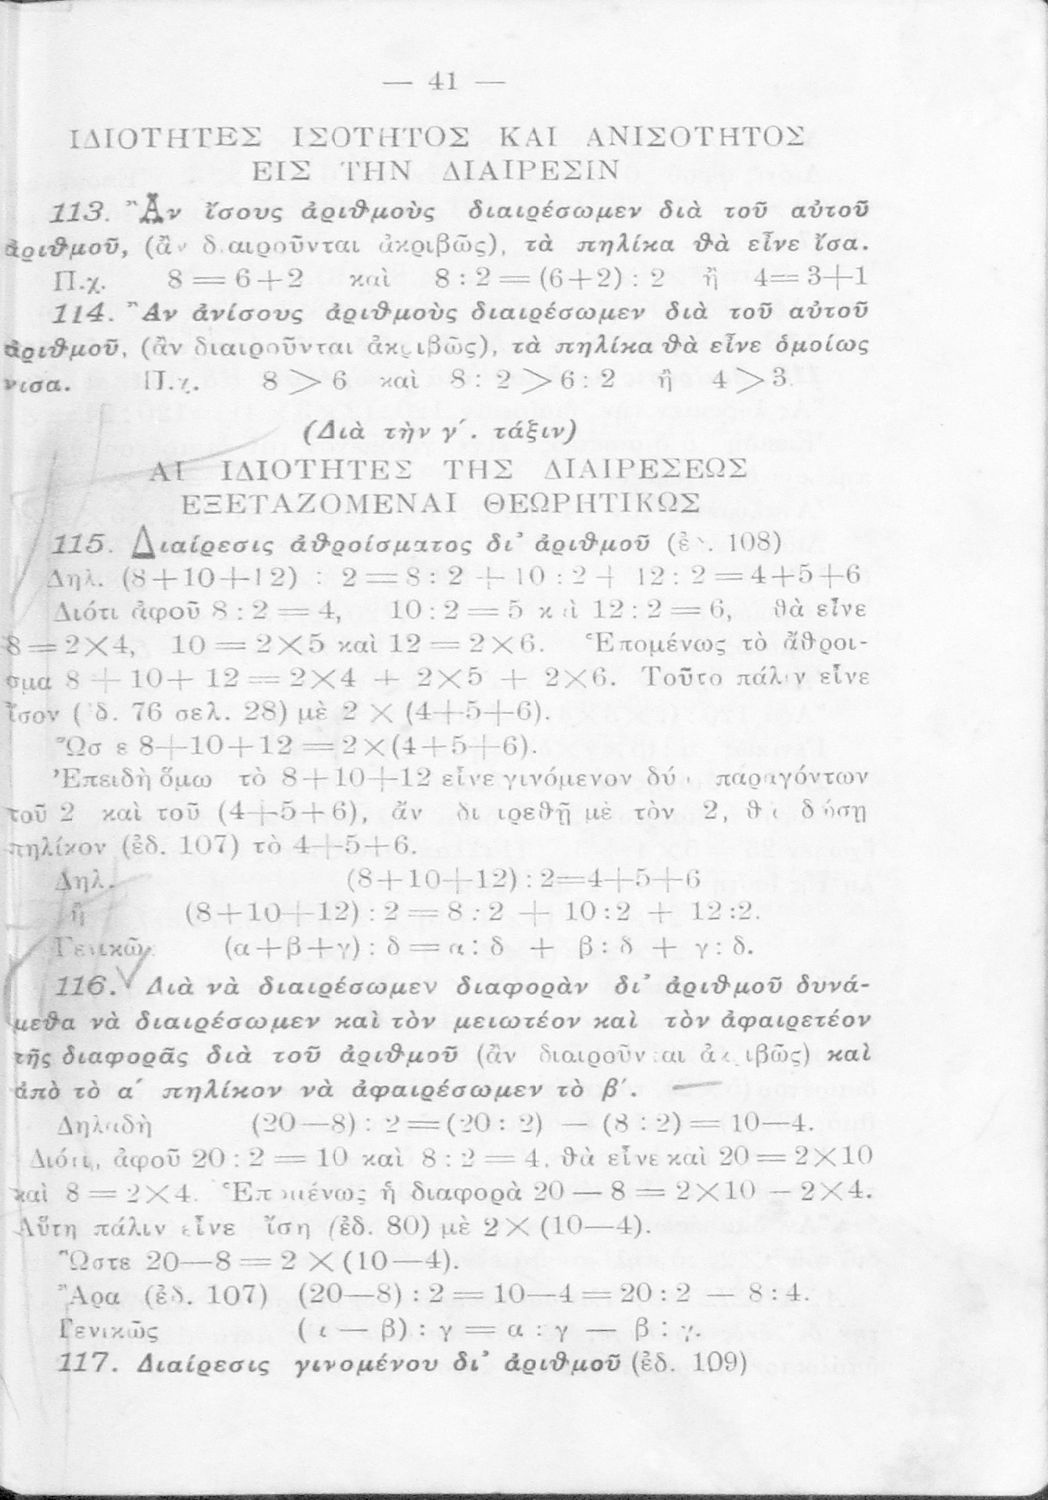 — 41 —
ΙΔΙΟΤΗΤΕΣ ΙΣΟΤΗΤΟΣ ΚΑΙ ΑΝΙΣΟΤΗΤΟΣ
ΕΙΣ ΤΗΝ ΔΙΑΙΡΕΣΙΝ
113. Ἂν ἴσους ἀριθμοὺς διαιρέσωμεν διὰ τοῦ αὐτοῦ
ἀριθμοῦ, (ἂν διαιροῦνται ἀκριβῶς), τὰ πηλίκα θὰ εἶνε ἴσα.
Π.χ. 8 = 6+2 καὶ 8 : 2 = (6+2) : 2 ἢ 4= 3+1
114. Ἂν ἀνίσους ἀριθμοὺς διαιρέσωμεν διὰ τοῦ αὐτοῦ
ἀριθμοῦ, (ἂν διαιροῦνται ἀκριβῶς), τὰ πηλίκα θὰ εἶνε ὁμοίως
νισα. Π.χ. 8 > 6 καὶ 8 : 2 > 6 : 2 ἢ 4 > 3.
(Διὰ τὴν γ΄. τάξιν)
ΑΙ ΙΔΙΟΤΗΤΕΣ ΤΗΣ ΔΙΑΙΡΕΣΕΩΣ
ΕΞΕΤΑΖΟΜΕΝΑΙ ΘΕΩΡΗΤΙΚΩΣ
115. Διαίρεσις ἀθροίσματος δι' ἀριθμοῦ (ἐδ. 108)
Δηλ. (8+10+12) : 2 = 8 : 2 + 10 : 2 + 12 : 2 = 4+5+6
Διότι ἀφοῦ 8 : 2 = 4, 10 : 2 = 5 καὶ 12 : 2 = 6, θὰ εἶνε
8 = 2×4, 10 = 2×5 καὶ 12 = 2×6. Ἑπομένως τὸ ἄθροι-
σμα 8 + 10+ 12 = 2×4 + 2×5 + 2×6. Τοῦτο πάλιν εἶνε
ἴσον (ἐδ. 76 σελ. 28) μὲ 2 × (4+5+6).
Ὥστε 8+10+12 = 2×(4+5+6).
Ἐπειδὴ ὅμω τὸ 8+10+12 εἶνε γινόμενον δύο παραγόντων
τοῦ 2 καὶ τοῦ (4+5+6), ἂν διαιρεθῇ μὲ τὸν 2, θὰ δώσῃ
πηλίκον (ἐδ. 107) τὸ 4+5+6.
Δηλ. (8+10+12) : 2=4+5+6
ἢ (8+10+12) : 2 = 8 : 2 + 10:2 + 12:2.
Γενικῶς (α+β+γ) : δ = α : δ + β : δ + γ : δ.
116. Διὰ νὰ διαιρέσωμεν διαφορὰν δι' ἀριθμοῦ δυνά-
μεθα νὰ διαιρέσωμεν καὶ τὸν μειωτέον καὶ τὸν ἀφαιρετέον
τῆς διαφορᾶς διὰ τοῦ ἀριθμοῦ (ἂν διαιροῦνται ἀκριβῶς) καὶ
ἀπὸ τὸ α΄ πηλίκον νὰ ἀφαιρέσωμεν τὸ β΄.
Δηλαδὴ (20—8) : 2 = (20 : 2) — (8 : 2) = 10—4.
Διότι, ἀφοῦ 20 : 2 = 10 καὶ 8 : 2 = 4, θὰ εἶνε καὶ 20 = 2×10
καὶ 8 = 2×4. Ἑπομένως ἡ διαφορὰ 20 — 8 = 2×10 — 2×4.
Αὕτη πάλιν εἶνε ἴση (ἐδ. 80) μὲ 2× (10—4).
Ὥστε 20—8 = 2 × (10—4).
Ἄρα (ἐδ. 107) (20—8) : 2 = 10—4 = 20 : 2 — 8 : 4.
Γενικῶς (α — β) : γ = α : γ — β : γ.
117. Διαίρεσις γινομένου δι' ἀριθμοῦ (ἐδ. 109)